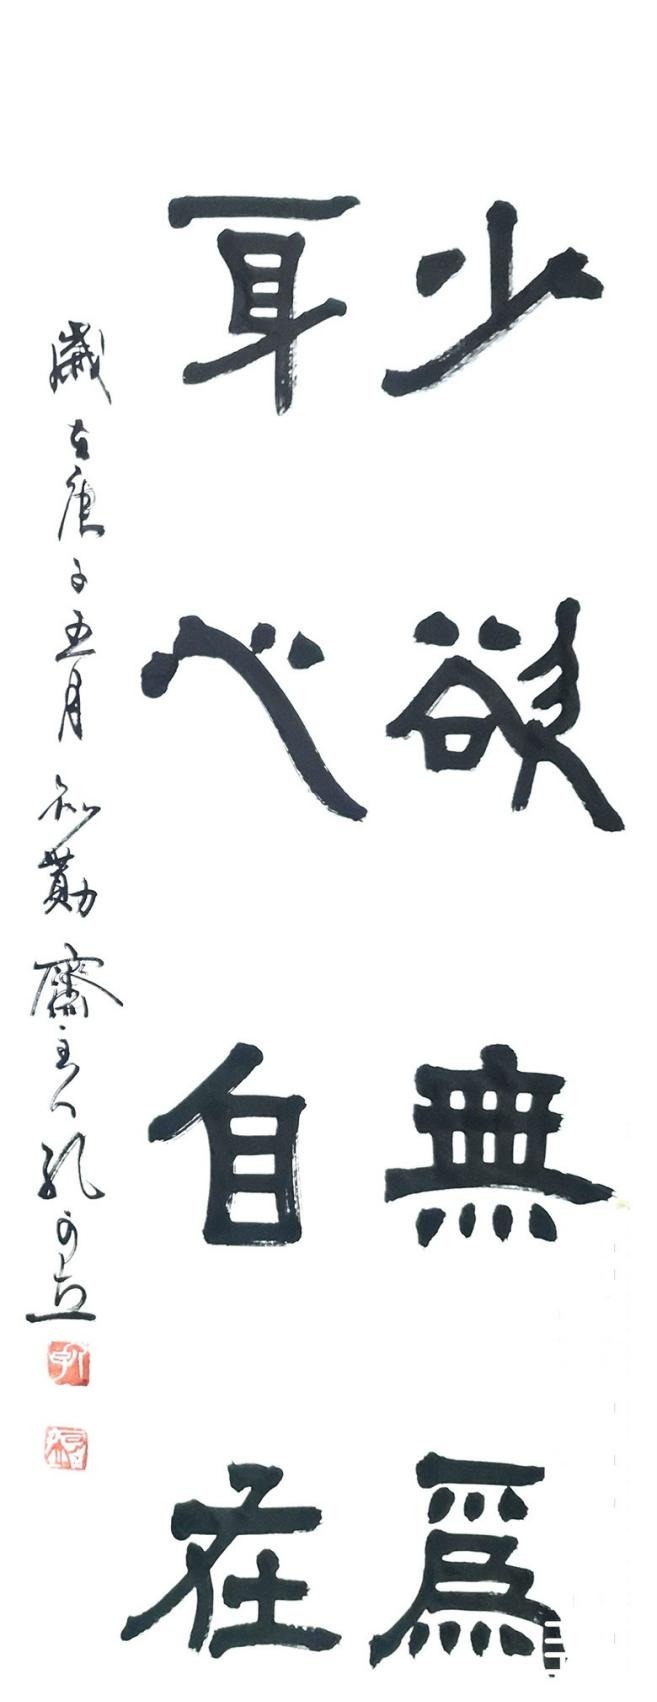 少欲無為
身心自在
歲在庚子五月知勤齋主人孔可立